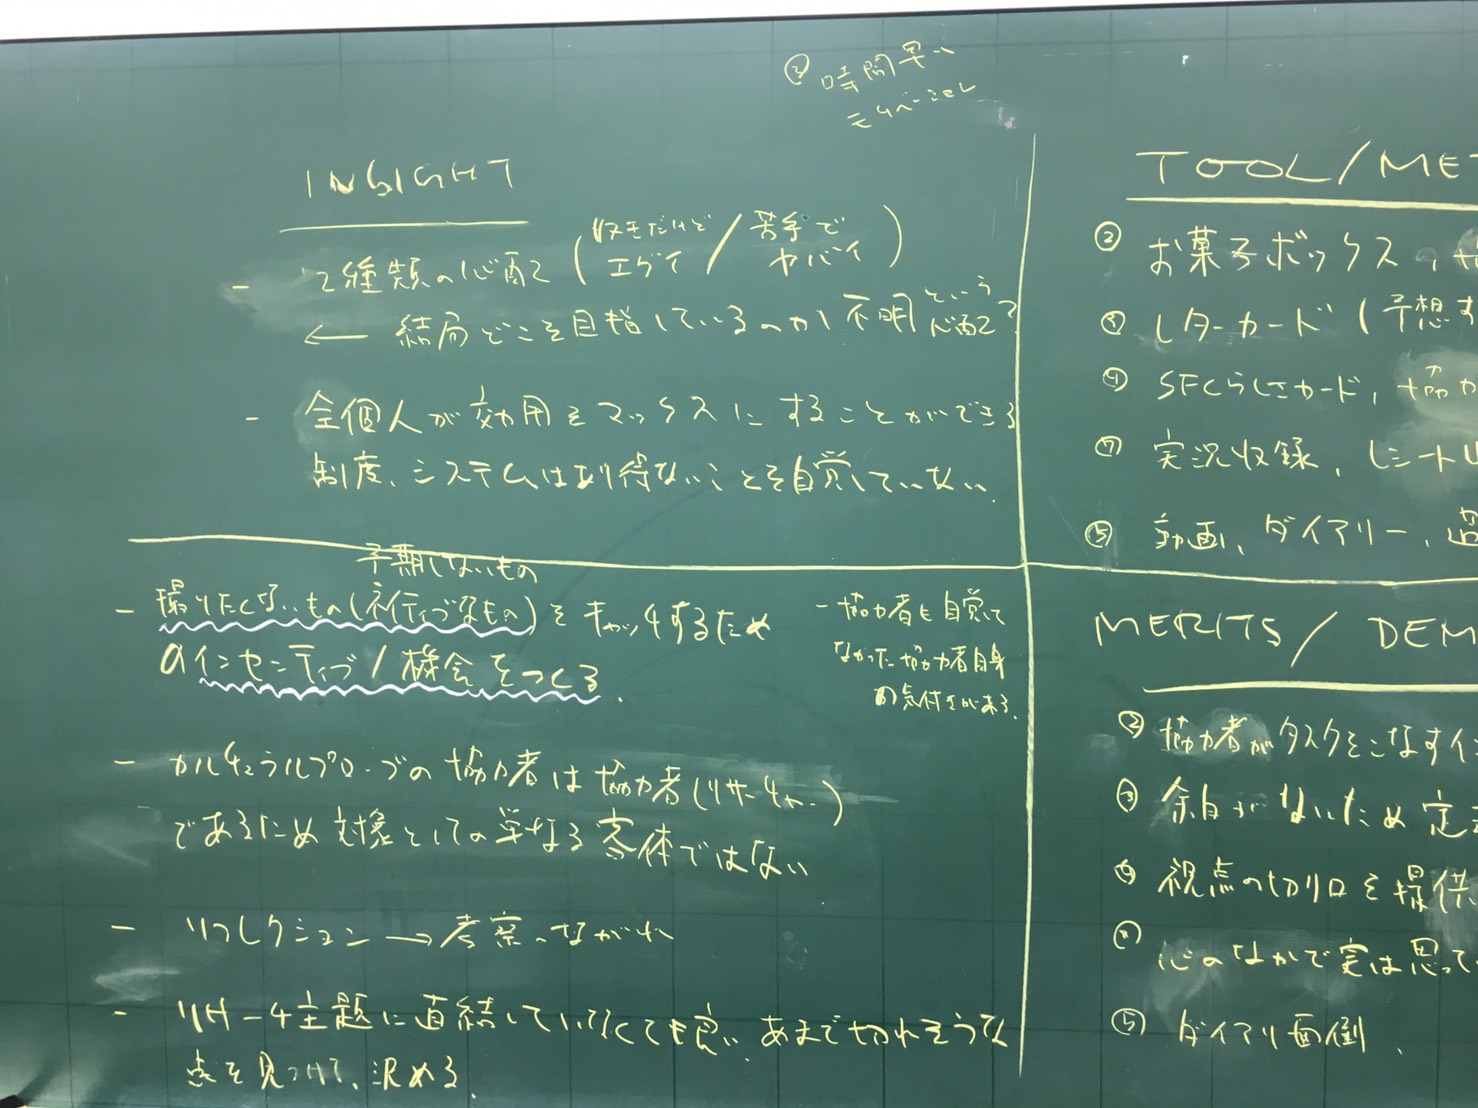 時間早い
INSIGHT
- 2種類の心配 (好きだけどエグイ / 苦手でヤバイ)
← 結局どこを目指しているのか不明という心配
- 全個人が効用をマックスにすることができる
制度、システムはあり得ないことを自覚していない
予期しないもの
- 撮りたくないもの(ネイティブなもの)をキャッチするため
のインセンティブ/機会をつくる.
- 協力者も自覚して
なかった協力者自身
の気付きがある.
- カルチュラルプローブの協力者は協力者(リサーチャー)
であるため対象としての単なる客体ではない
- リフレクション→考察へながれ
- リサーチ主題に直結していなくても良い. あまで切れそうな
点を見つけて、決める.
TOOL/MET
② お菓子ボックス,
③ レターカード (予想す
④ SFCらしさカード, 協力
⑦ 実況収録, レシート
⑤ 動画, ダイアリー,
MERITS / DEM
② 協力者がタスクをこなす
③ 余白がないため定
④ 視点の切り口を提供
心のなかで実は思って
⑤ ダイアリ面倒.